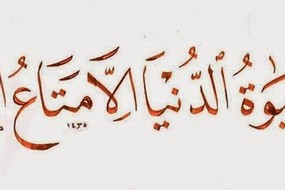 الدُّنْيَا اِلَّا مَتَاعُ
١٤٣٥